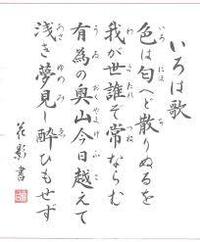 いろは歌
色は匂へど散りぬるを
我が世誰ぞ常ならむ
有為の奥山今日越えて
浅き夢見じ酔ひもせず
花影書